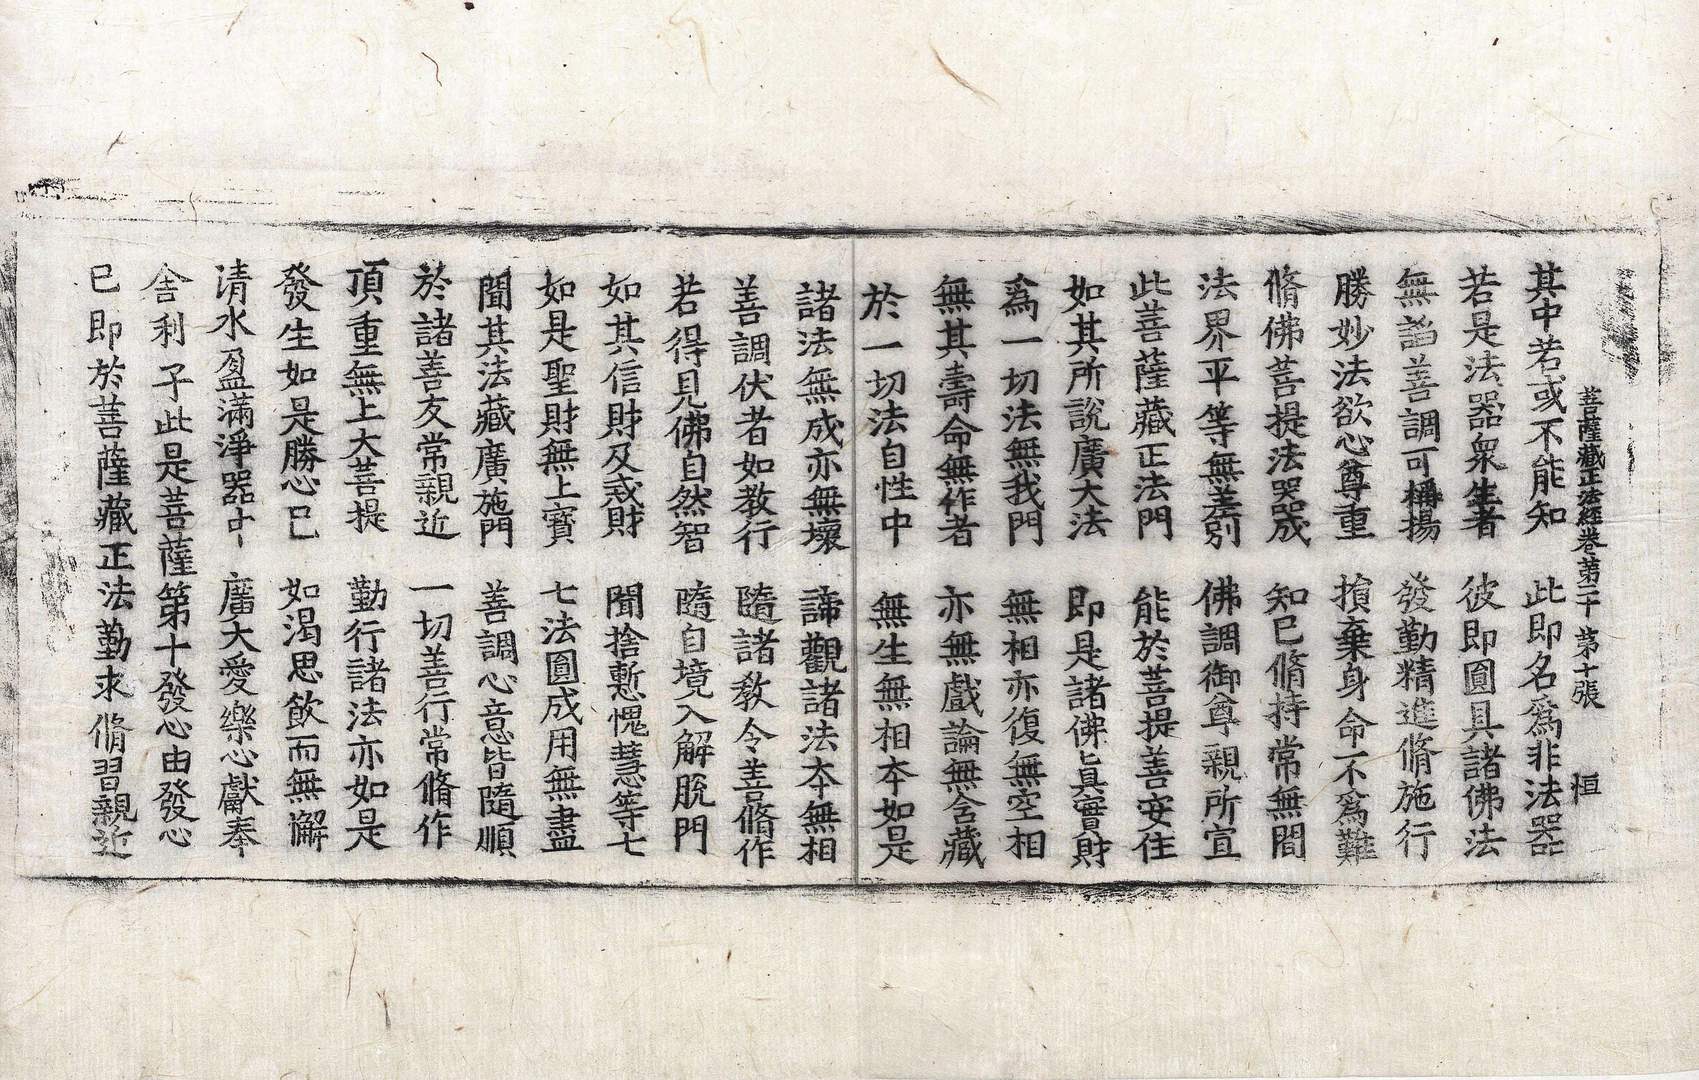 菩薩藏正法經卷第二十 第十張 桓
其中若或不能知 此即名爲非法器
若是法器衆生者 彼即圓具諸佛法
無諂善調可稱揚 發勤精進脩施行
勝妙法欲心尊重 損棄身命不爲難
脩佛菩提法器成 知已脩持常無間
法界平等無差別 佛調御尊親所宣
此菩薩藏正法門 能於菩提善安住
如其所說廣大法 即是諸佛眞實財
爲一切法無我門 無相亦復無空相
無其壽命無作者 亦無戲論無含藏
於一切法自性中 無生無相本如是
諸法無成亦無壞 諦觀諸法本無相
善調伏者如教行 隨諸教令善脩作
若得見佛自然智 隨自境入解脫門
如其信財及戒財 聞捨慙愧慧等七
如是聖財無上寶 七法圓成用無盡
聞其法藏廣施門 善調心意皆隨順
於諸善友常親近 一切善行常脩作
頂重無上大菩提 勤行諸法亦如是
發生如是勝心已 如渴思飲而無懈
清水盈滿淨器中 廣大愛樂心獻奉
舍利子此是菩薩第十發心由發心
已即於菩薩藏正法勤求脩習親近